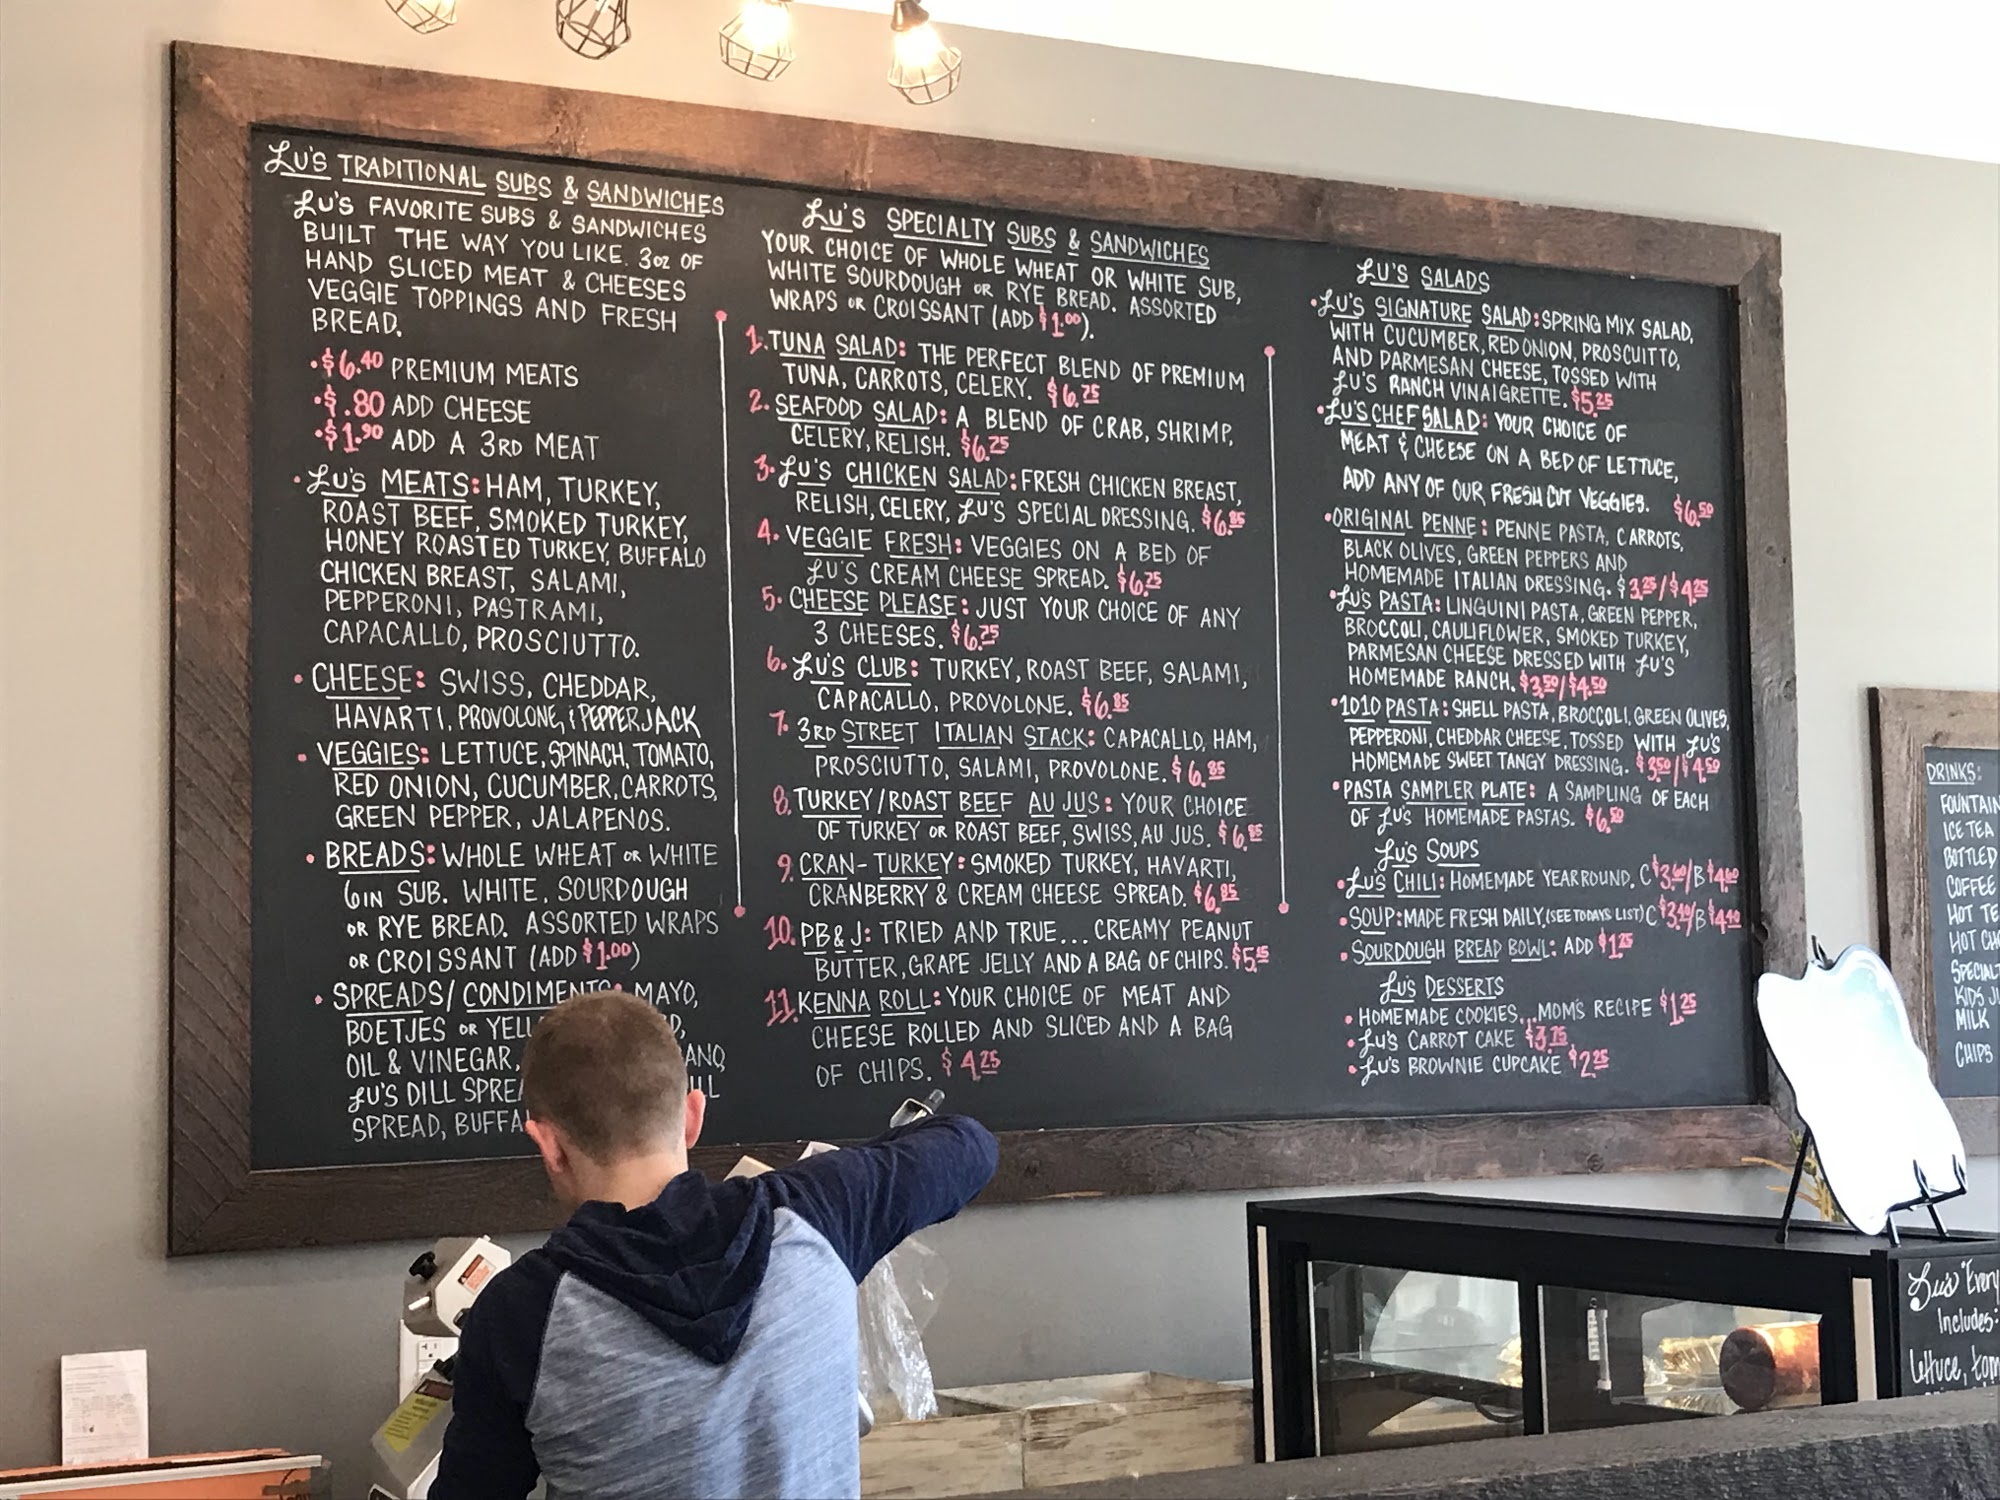 Lu's Traditional Subs & Sandwiches
Lu's Favorite Subs & Sandwiches
Built the way you like. 3oz of
hand sliced meat & cheeses
veggie toppings and fresh
bread.
•$6.40 Premium Meats
•$.80 Add Cheese
•$1.90 Add a 3rd Meat
•Lu's Meats: Ham, Turkey,
Roast Beef, Smoked Turkey,
Honey Roasted Turkey, Buffalo
Chicken Breast, Salami,
Pepperoni, Pastrami,
Capacallo, Prosciutto.
•Cheese: Swiss, Cheddar,
Havarti, Provolone, & Pepperjack
•Veggies: Lettuce, Spinach, Tomato,
Red Onion, Cucumber, Carrots,
Green Pepper, Jalapenos.
•Breads: Whole Wheat or White
6in Sub. White, Sourdough
or Rye Bread. Assorted Wraps
or Croissant (Add $1.00)
•Spreads/Condiments: Mayo,
Boetjes or
Oil & Vinegar,
Lu's Dill
Spread,
Lu's Specialty Subs & Sandwiches
Your choice of whole wheat or white sub,
white sourdough or rye bread. Assorted
wraps or croissant (add $1.00).
1. Tuna Salad: The perfect blend of premium
tuna, carrots, celery. $6.75
2. Seafood Salad: A blend of crab, shrimp,
celery, relish. $6.75
3. Lu's Chicken Salad: Fresh chicken breast,
relish, celery, Lu's special dressing. $6.85
4. Veggie Fresh: Veggies on a bed of
Lu's cream cheese spread. $6.25
5. Cheese Please: Just your choice of any
3 cheeses. $6.75
6. Lu's Club: Turkey, roast beef, salami,
capacallo, provolone. $6.85
7. 3rd Street Italian Stack: Capacallo, ham,
prosciutto, salami, provolone. $6.85
8. Turkey/Roast Beef Au Jus: Your choice
of turkey or roast beef, swiss, au jus. $6.85
9. Cran-Turkey: Smoked turkey, havarti,
cranberry & cream cheese spread. $6.85
10. PB&J: Tried and true... creamy peanut
butter, grape jelly and a bag of chips. $5.15
11. Kenna Roll: Your choice of meat and
cheese rolled and sliced and a bag
of chips. $4.25
Lu's Salads
•Lu's Signature Salad: Spring mix salad,
with cucumber, red onion, proscuitto,
and parmesan cheese, tossed with
Lu's ranch vinaigrette. $5.25
•Lu's Chef Salad: Your choice of
meat & cheese on a bed of lettuce,
add any of our fresh cut veggies. $6.50
•Original Penne: Penne pasta, carrots,
black olives, green peppers and
homemade italian dressing. $3.25/$4.25
•Lu's Pasta: Linguini pasta, green pepper,
broccoli, cauliflower, smoked turkey,
parmesan cheese dressed with Lu's
homemade ranch. $3.50/$4.50
•1010 Pasta: Shell pasta, broccoli, green olives,
pepperoni, cheddar cheese, tossed with Lu's
homemade sweet tangy dressing. $3.50/$4.50
•Pasta Sampler Plate: A sampling of each
of Lu's homemade pastas. $6.50
Lu's Soups
•Lu's Chili: Homemade year round. C $3.60/B $4.60
•Soup: Made fresh daily (see todays list) C $3.40/B $4.40
•Sourdough Bread Bowl: Add $1.25
Lu's Desserts
•Homemade Cookies...Mom's Recipe $1.25
•Lu's Carrot Cake $3.75
•Lu's Brownie Cupcake $2.25
Drinks:
Fountain
Ice Tea
Bottled
Coffee
Hot
Hot
Kids
Milk
Chips
Lu's
Includes:
lettuce,